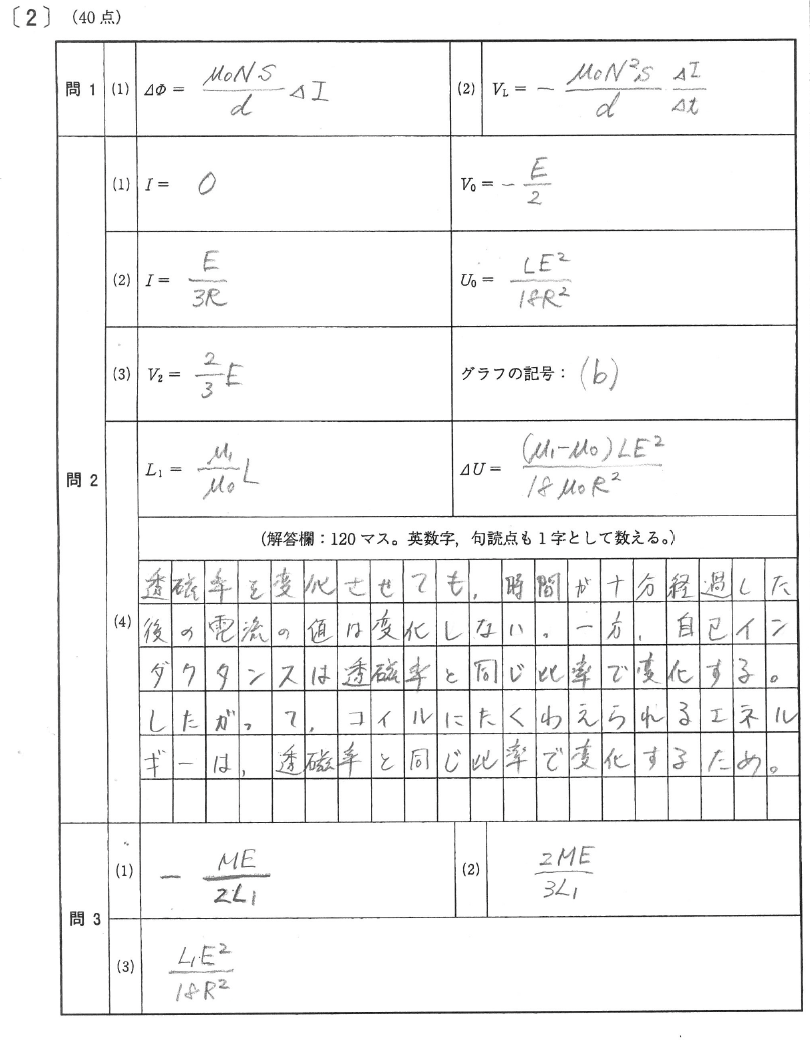 〔2〕(40点)
問1 (1) ΔΦ = μ₀NS/d ΔI (2) V_L = − μ₀N²S/d ΔI/Δt
(1) I = 0 V₀ = − E/2
(2) I = E/3R U₀ = LE²/18R²
(3) V₂ = 2/3 E グラフの記号:(b)
問2 (4) L₁ = μ₁/μ₀ L ΔU = (μ₁−μ₀)LE²/18μ₀R²
(解答欄:120マス。英数字,句読点も1字として数える。)
透磁率を変化させても,時間が十分経過した
後の電流の値は変化しない。一方,自己イン
ダクタンスは透磁率と同じ比率で変化する。
したがって,コイルにたくわえられるエネル
ギーは,透磁率と同じ比率で変化するため。
問3 (1) − ME/2L₁ (2) 2ME/3L₁
(3) L₁E²/18R²